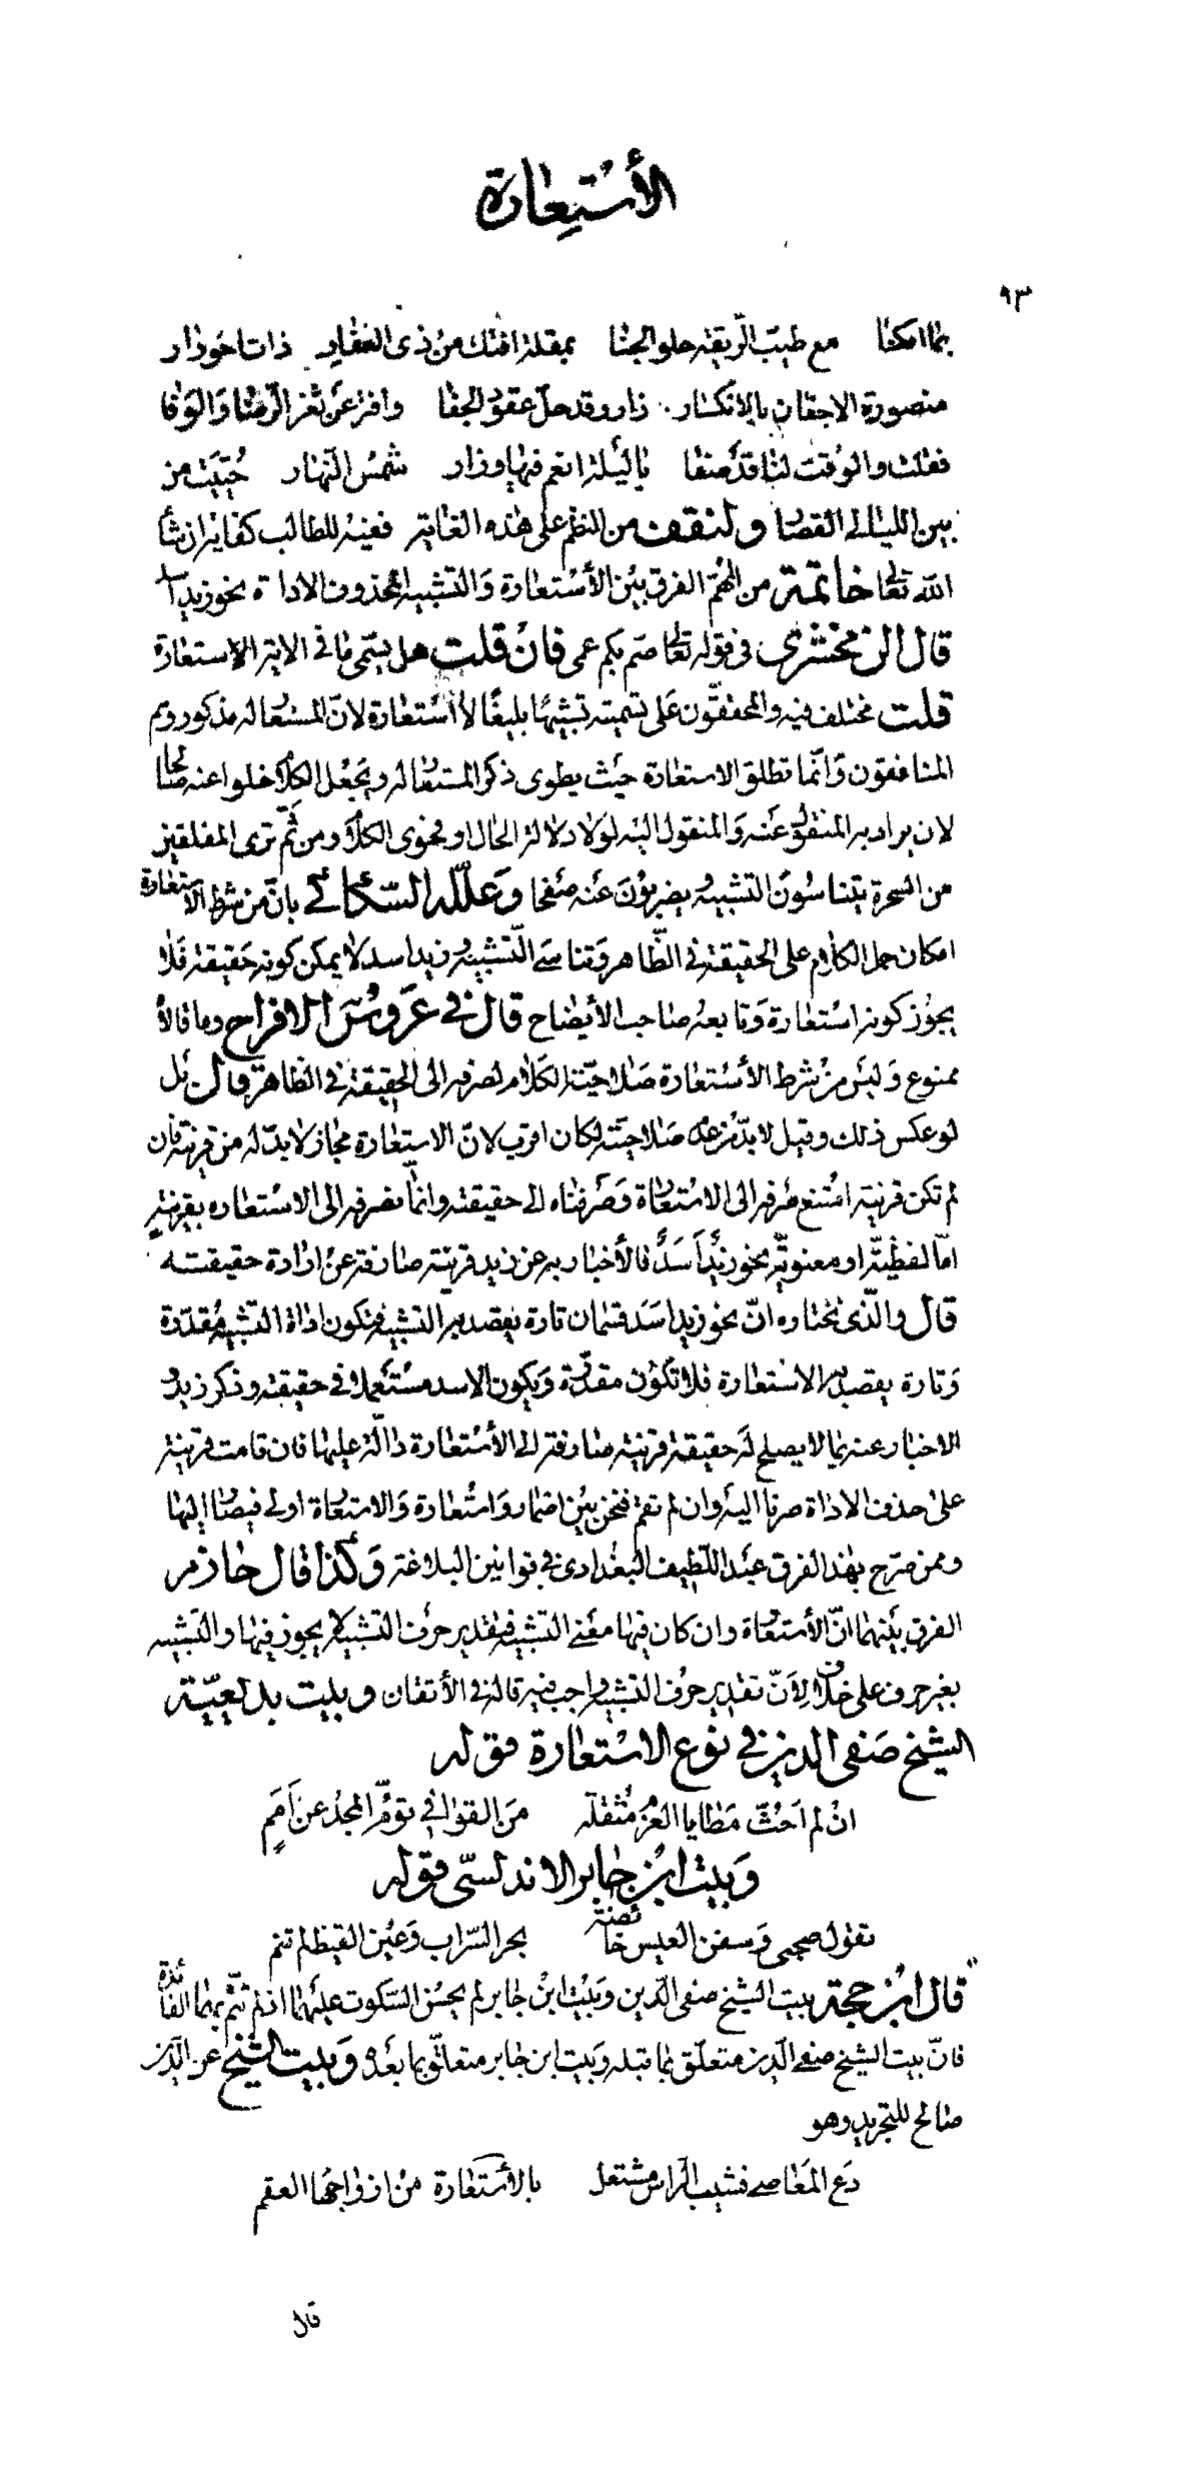 الأستعارة
٩٣
بما امكنا مع طيب الريقة حلو الجنا بمقلة افتك من ذى الفقار ذات احورار
منصورة الاجفان بالانكسار زار وقد حلّ عقود الجفا وافترّ عن ثغر الرضا والوفا
فقلت والوقت لنا قد صفا يا ليلة انعم فيها وزار شمس النهار حييت من
بين الليالى القصار ولنقف من النظم على هذه الغاية ففيه للطالب كفاية ان شاء
الله تعالى خاتمة من المهم الفرق بين الأستعارة والتشبيه المحذوف الاداة نحو زيد اسد
قال الزمخشري فى قوله تعالى صم بكم عمى فان قلت هل يسمّى ما فى الاية الاستعارة
قلت مختلف فيه والمحققون على تسميته تشبيها بليغا لا أستعارة لانّ المستعار له مذكور وهم
المنافقون وانّما تطلق الاستعارة حيث يطوى ذكر المستعار له ويجعل الكلام خلوا عنه صالحا
لان يراد به المنقول عنه والمنقول اليه لولا دلالة الحال او فحوى الكلام ومن ثمّ ترى المفلقين
من السحرة يتناسون التشبيه ويضربون عنه صفحا وعلّله السكاكى بانّ من شرط الاستعارة
امكان حمل الكلام على الحقيقة فى الظاهر وتناسى التشبيه وزيد اسد لا يمكن كونه حقيقة فلا
يجوز كونه استعارة وتابعه صاحب الأيضاح قال فى عروس الافراح وما قالاه
ممنوع وليس من شرط الأستعارة صلاحية الكلام لصرفه الى الحقيقة فى الظاهر قال بل
لو عكس ذلك وقيل لا بدّ من عدم صلاحيته لكان اقرب لانّ الاستعارة مجاز لا بدّ له من قرينة فان
لم تكن قرينة امتنع صرفه الى الاستعارة وصرفناه الى حقيقته وانّما نصرفه الى الاستعاره بقرينة
امّا لفظيّة او معنويّة نحو زيد اسد فالأخبار به عن زيد قرينة صارفة عن ارادة حقيقته
قال والّذى نختاره انّ نحو زيد اسد قسمان تارة يقصد به التشبيه فتكون اداة التشبيه مقدّرة
وتارة يقصد به الاستعارة فلا تكون مقدّرة ويكون الاسد مستعملا فى حقيقته وذكر زيد و
الاخبار عنه بما لا يصلح له حقيقة قرينة صارفة الى الأستعارة دالّة عليها فان قامت قرينة
على حذف الاداة صرنا اليه وان لم تقم فنحن بين اضمار واستعارة والاستعارة اولى فيصار اليها
وممن صرّح بهذا الفرق عبد اللطيف البغدادى فى قوانين البلاغة وكذا قال حازم
الفرق بينهما انّ الأستعارة وان كان فيها معنى التشبيه فتقدير حرف التشبيه لا يجوز فيها والتشبيه
بغير حرف على خلاف ذلك لانّ تقدير حرف التشبيه واجب فيه قاله فى الأتقان وبيت بديعيّة
الشيخ صفى الدين فى نوع الاستعارة قوله
ان لم احثّ مطايا العزم مثقلة من القوافى تؤمّ المجد عن امم
وبيت ابن جابر الاندلسى قوله
تقول صحبى وسفن العيس خائضة بحر السراب وعين القيظ لم تنم
قال ابن حجة بيت الشيخ صفى الدين وبيت ابن جابر لم يحسن السكوت عليهما اذ لم تتم بهما الفائدة
فانّ بيت الشيخ صفى الدين متعلق بما قبله وبيت ابن جابر متعلّق بما بعده وبيت الشيخ عز الدين
صالح للتجريد وهو
دع المعاصى فشيب الرأس مشتعل بالأستعارة من ازواجها العقم
قال